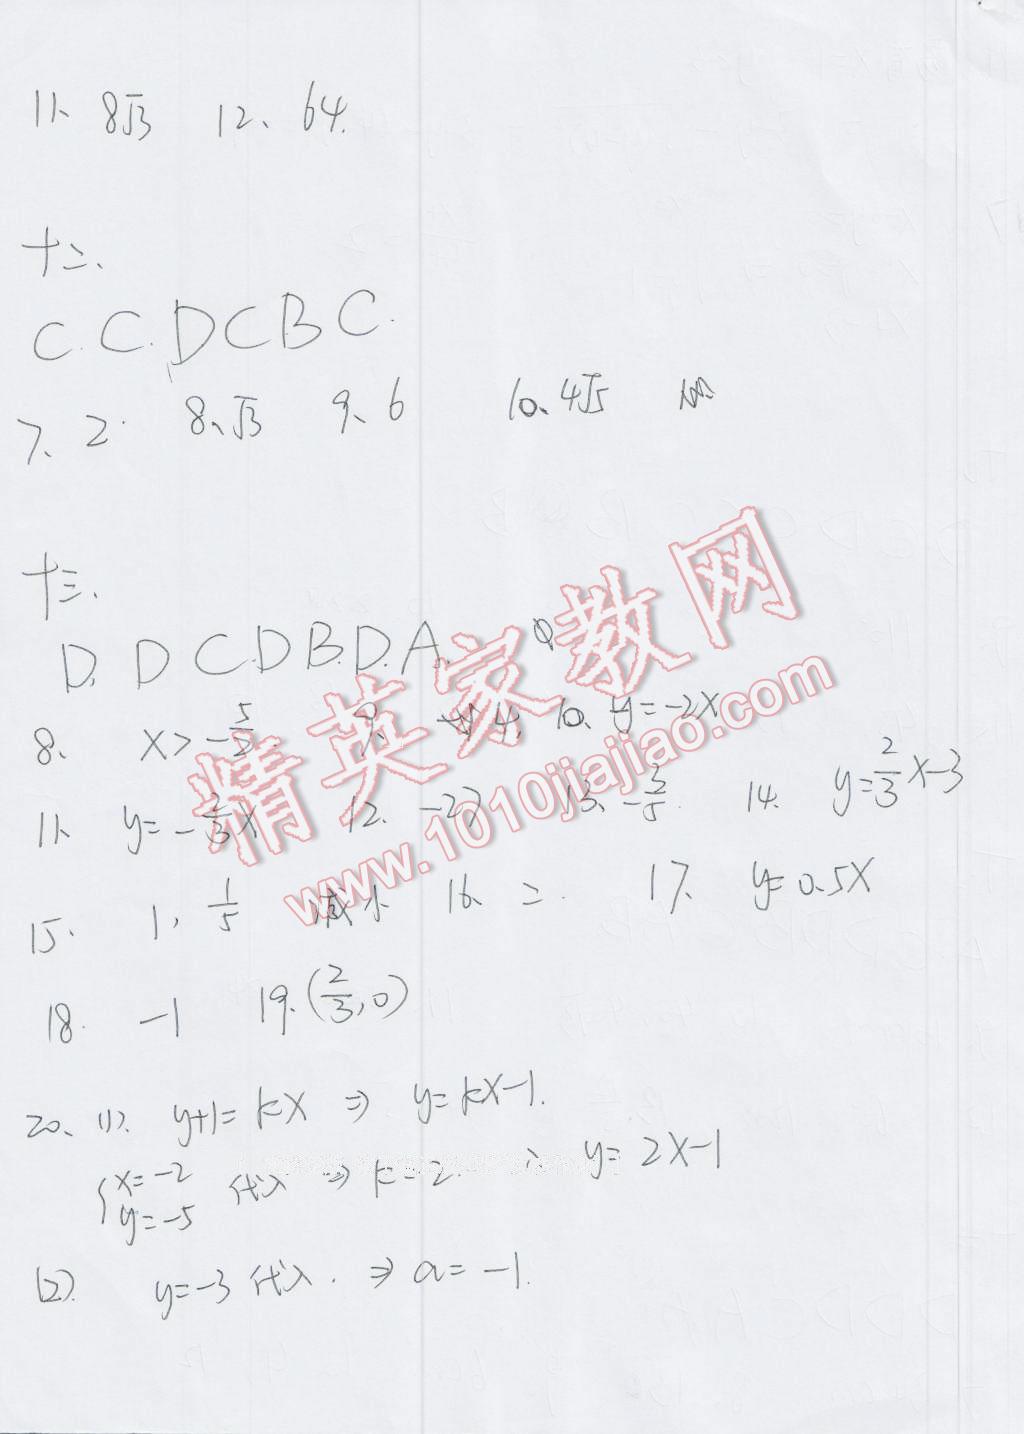 11、8√3 12、64.
十二、
C. C. D C B C.
7、2. 8、√3 9、6 10、4√5
十三、
D. D C. D B. D. A.
8、 x>-5/2. 9、 4. 10、y=-2x
11、 y=-2/3x 12. -2 13、-2/5. 14. y=2/3x-3
15. 1, 1/5 减小 16、二. 17. y=0.5x
18. -1 19.(2/3,0)
20、(1). y+1=kx ⇒ y=kx-1.
{x=-2 y=-5 代入 ⇒ k=2. ∴ y=2x-1
(2). y=-3代入. ⇒ a=-1.
精英家教网
www.1010jiajiao.com